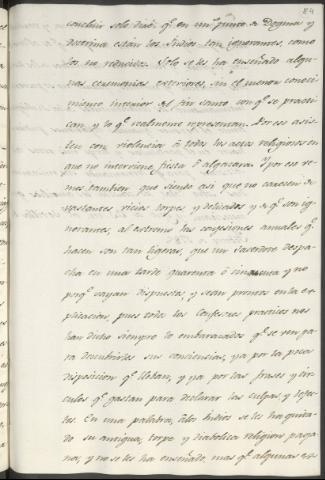 84
concluir solo diré: qᵉ en mⁿ punto de Dogma y
doctrina están los Indios tan ignorantes, como
los no reducidos. Solo se les ha enseñado algu-
nas ceremonias exteriores, sin el menor conoci-
miento interior del fin santo con qᵉ se practi-
can y lo qᵉ realmente representan. Por eso asis-
ten con violencia à todos los actos religiosos en
que no interviene fiesta ò algazara. Y por eso ve-
mos tambien que siendo asi que no carecen de
bastantes vicios torpes y delicados y de qᵉ son ig-
norantes, al extremo las confesiones anuales qᵉ
hacen son tan ligeras, que un sacerdote despa-
cha en una tarde quarenta ò cinquenta y no
porqᵉ vayan dispuestos, y sean prontos en la ex-
plicacion, pues todos los Confesores practicos nos
han dicho siempre lo embarazados qᵉ se ven pa-
ra descubrirles sus conciencias, ya por la poca
disposicion qᵉ llevan, y ya por las frases y cir-
culos qᵉ gastan para declarar las culpas y defec-
tos. En una palabra, à los Indios se les ha quita-
do su antigua, torpe y diabolica religion paga-
na, y no se les ha enseñado, mas qᵉ algunas ex-